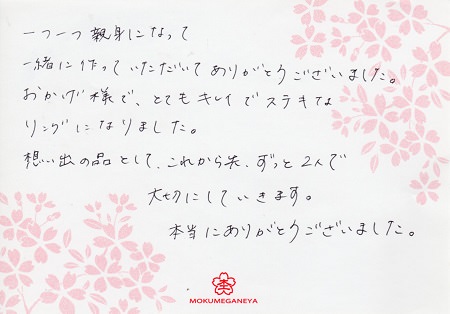 一つ一つ親身になって
一緒に作っていただいてありがとうございました。
おかげ様で、とてもキレイでステキな
リングになりました。
想い出の品として、これから先、ずっと2人で
大切にしていきます。
本当にありがとうございました。
MOKUMEGANEYA